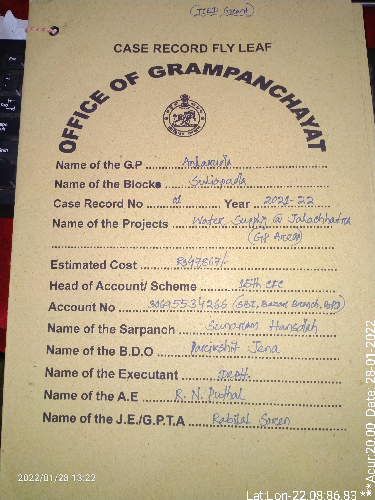 (TIED Grant)
CASE RECORD FLY LEAF
OFFICE OF GRAMPANCHAYAT
Name of the G.P Ankarada
Name of the Blocks Suliapada
Case Record No 01 Year 2021-22
Name of the Projects Water Supply @ Jalachhatra
(GP Area)
Estimated Cost
Head of Account/ Scheme 15th CFC
Account No 30695534266 (SBI, Bazar Branch, BPD)
Name of the Sarpanch Sunaram Hansdah
Name of the B.D.O Parikshit Jena
Name of the Executant Deptt.
Name of the A.E R. N. Puthal
Name of the J.E./G.P.T.A Rabilal Soren
2022/01/28 13:22
Lat:Lon-22.08:86.83
***Acur 20.00 Date: 28-01-2022